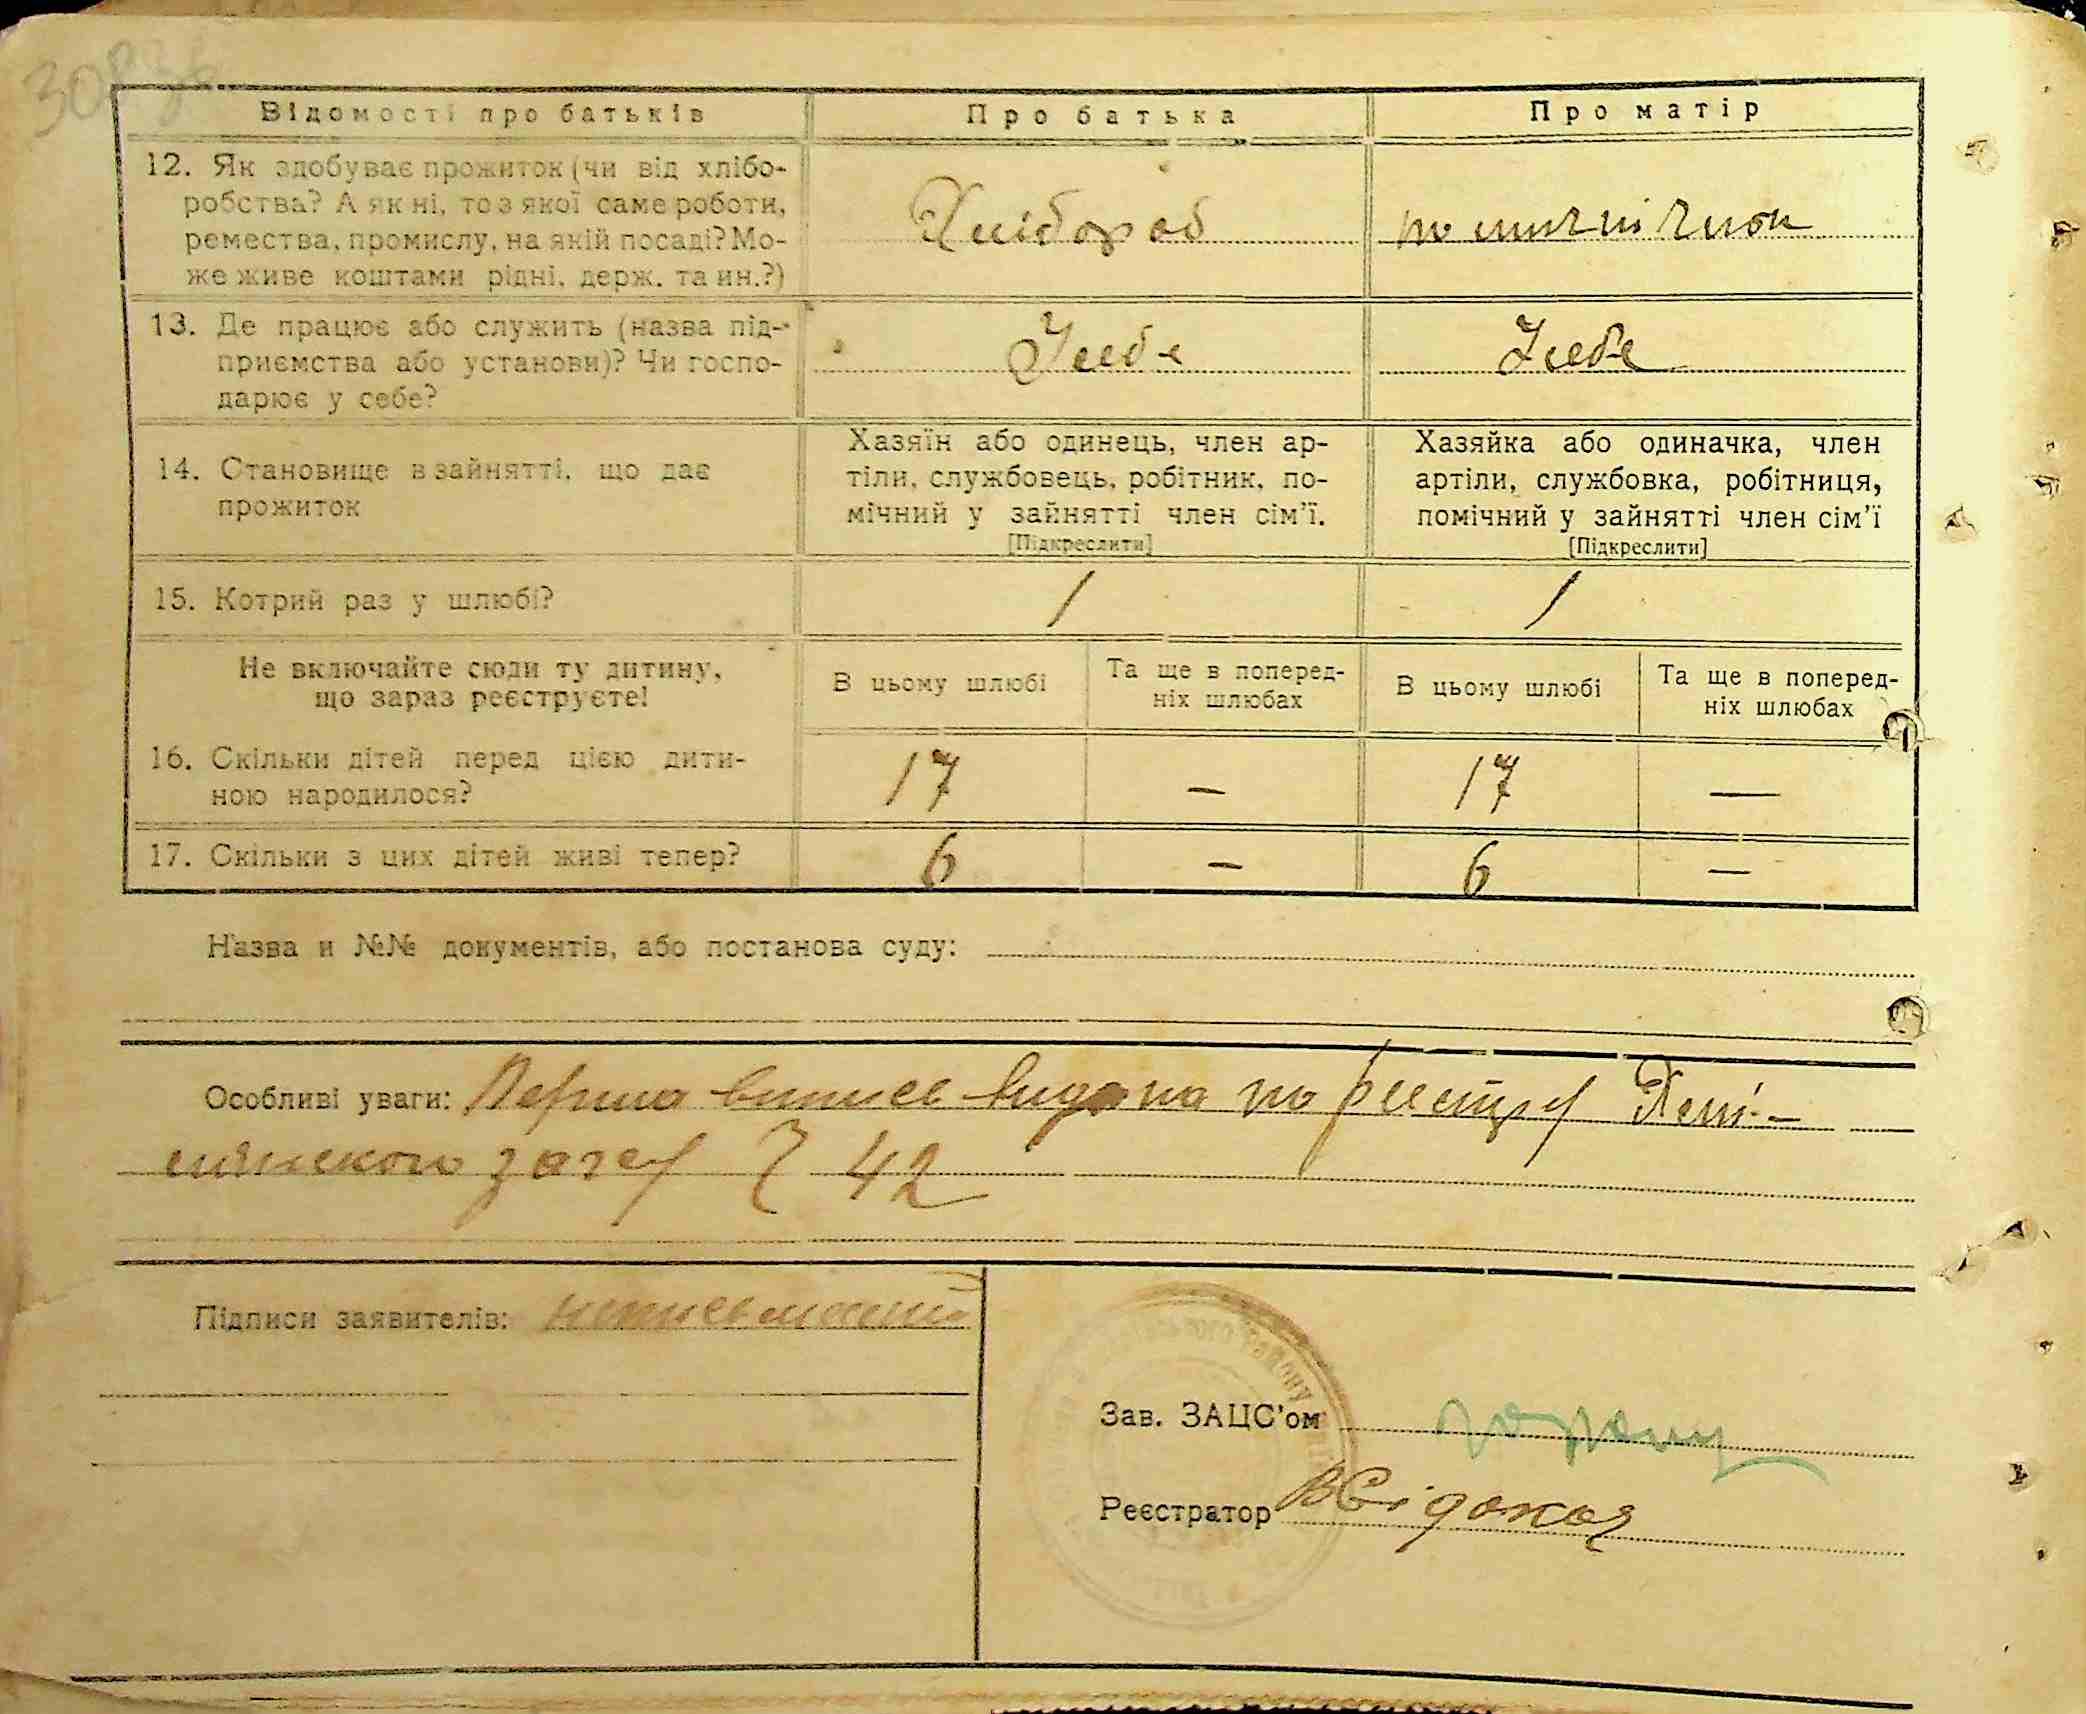 Відомості про батьків
Про батька
Про матір
12. Як здобуває прожиток (чи від хлібо-
робства? А як ні, то з якої саме роботи,
ремества, промислу, на якій посаді? Мо-
же живе коштами рідні, держ. та ин.?)
Хлібороб
13. Де працює або служить (назва під-
приємства або установи)? Чи госпо-
дарює у себе?
У себе
У себе
14. Становище в зайнятті, що дає
прожиток
Хазяїн або одинець, член ар-
тіли, службовець, робітник, по-
мічний у зайнятті член сім'ї.
[Підкреслити]
Хазяйка або одиначка, член
артіли, службовка, робітниця,
помічний у зайнятті член сім'ї
[Підкреслити]
15. Котрий раз у шлюбі?
1
1
Не включайте сюди ту дитину,
що зараз реєструєте!
В цьому шлюбі
Та ще в поперед-
ніх шлюбах
В цьому шлюбі
Та ще в поперед-
ніх шлюбах
16. Скільки дітей перед цією дити-
ною народилося?
17
—
17
—
17. Скільки з цих дітей живі тепер?
6
—
6
—
Назва и №№ документів, або постанова суду:
Особливі уваги: Перша випись видана по реєстру
Ч 42
Підписи заявителів: неписьменний
Зав. ЗАЦС'ом
Реєстратор